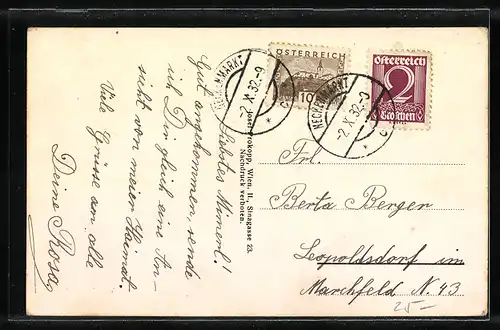 Liebstes Mimerl!
Gut angekommen, sende
ich Dir gleich eine An-
sicht von meiner Heimat.
Viele Grüsse an alle
Deine Rosa
Josef Prokopp, Wien, II., Sinagasse 23.
Nachdruck verboten.
NECKENMARKT
-2.X.32-9
ÖSTERREICH
10
NECKENMARKT
-2.X.32-
Österreich
2
Groschen
Frl.
Berta Berger
Leopoldsdorf im
Marchfeld N. 43
25-